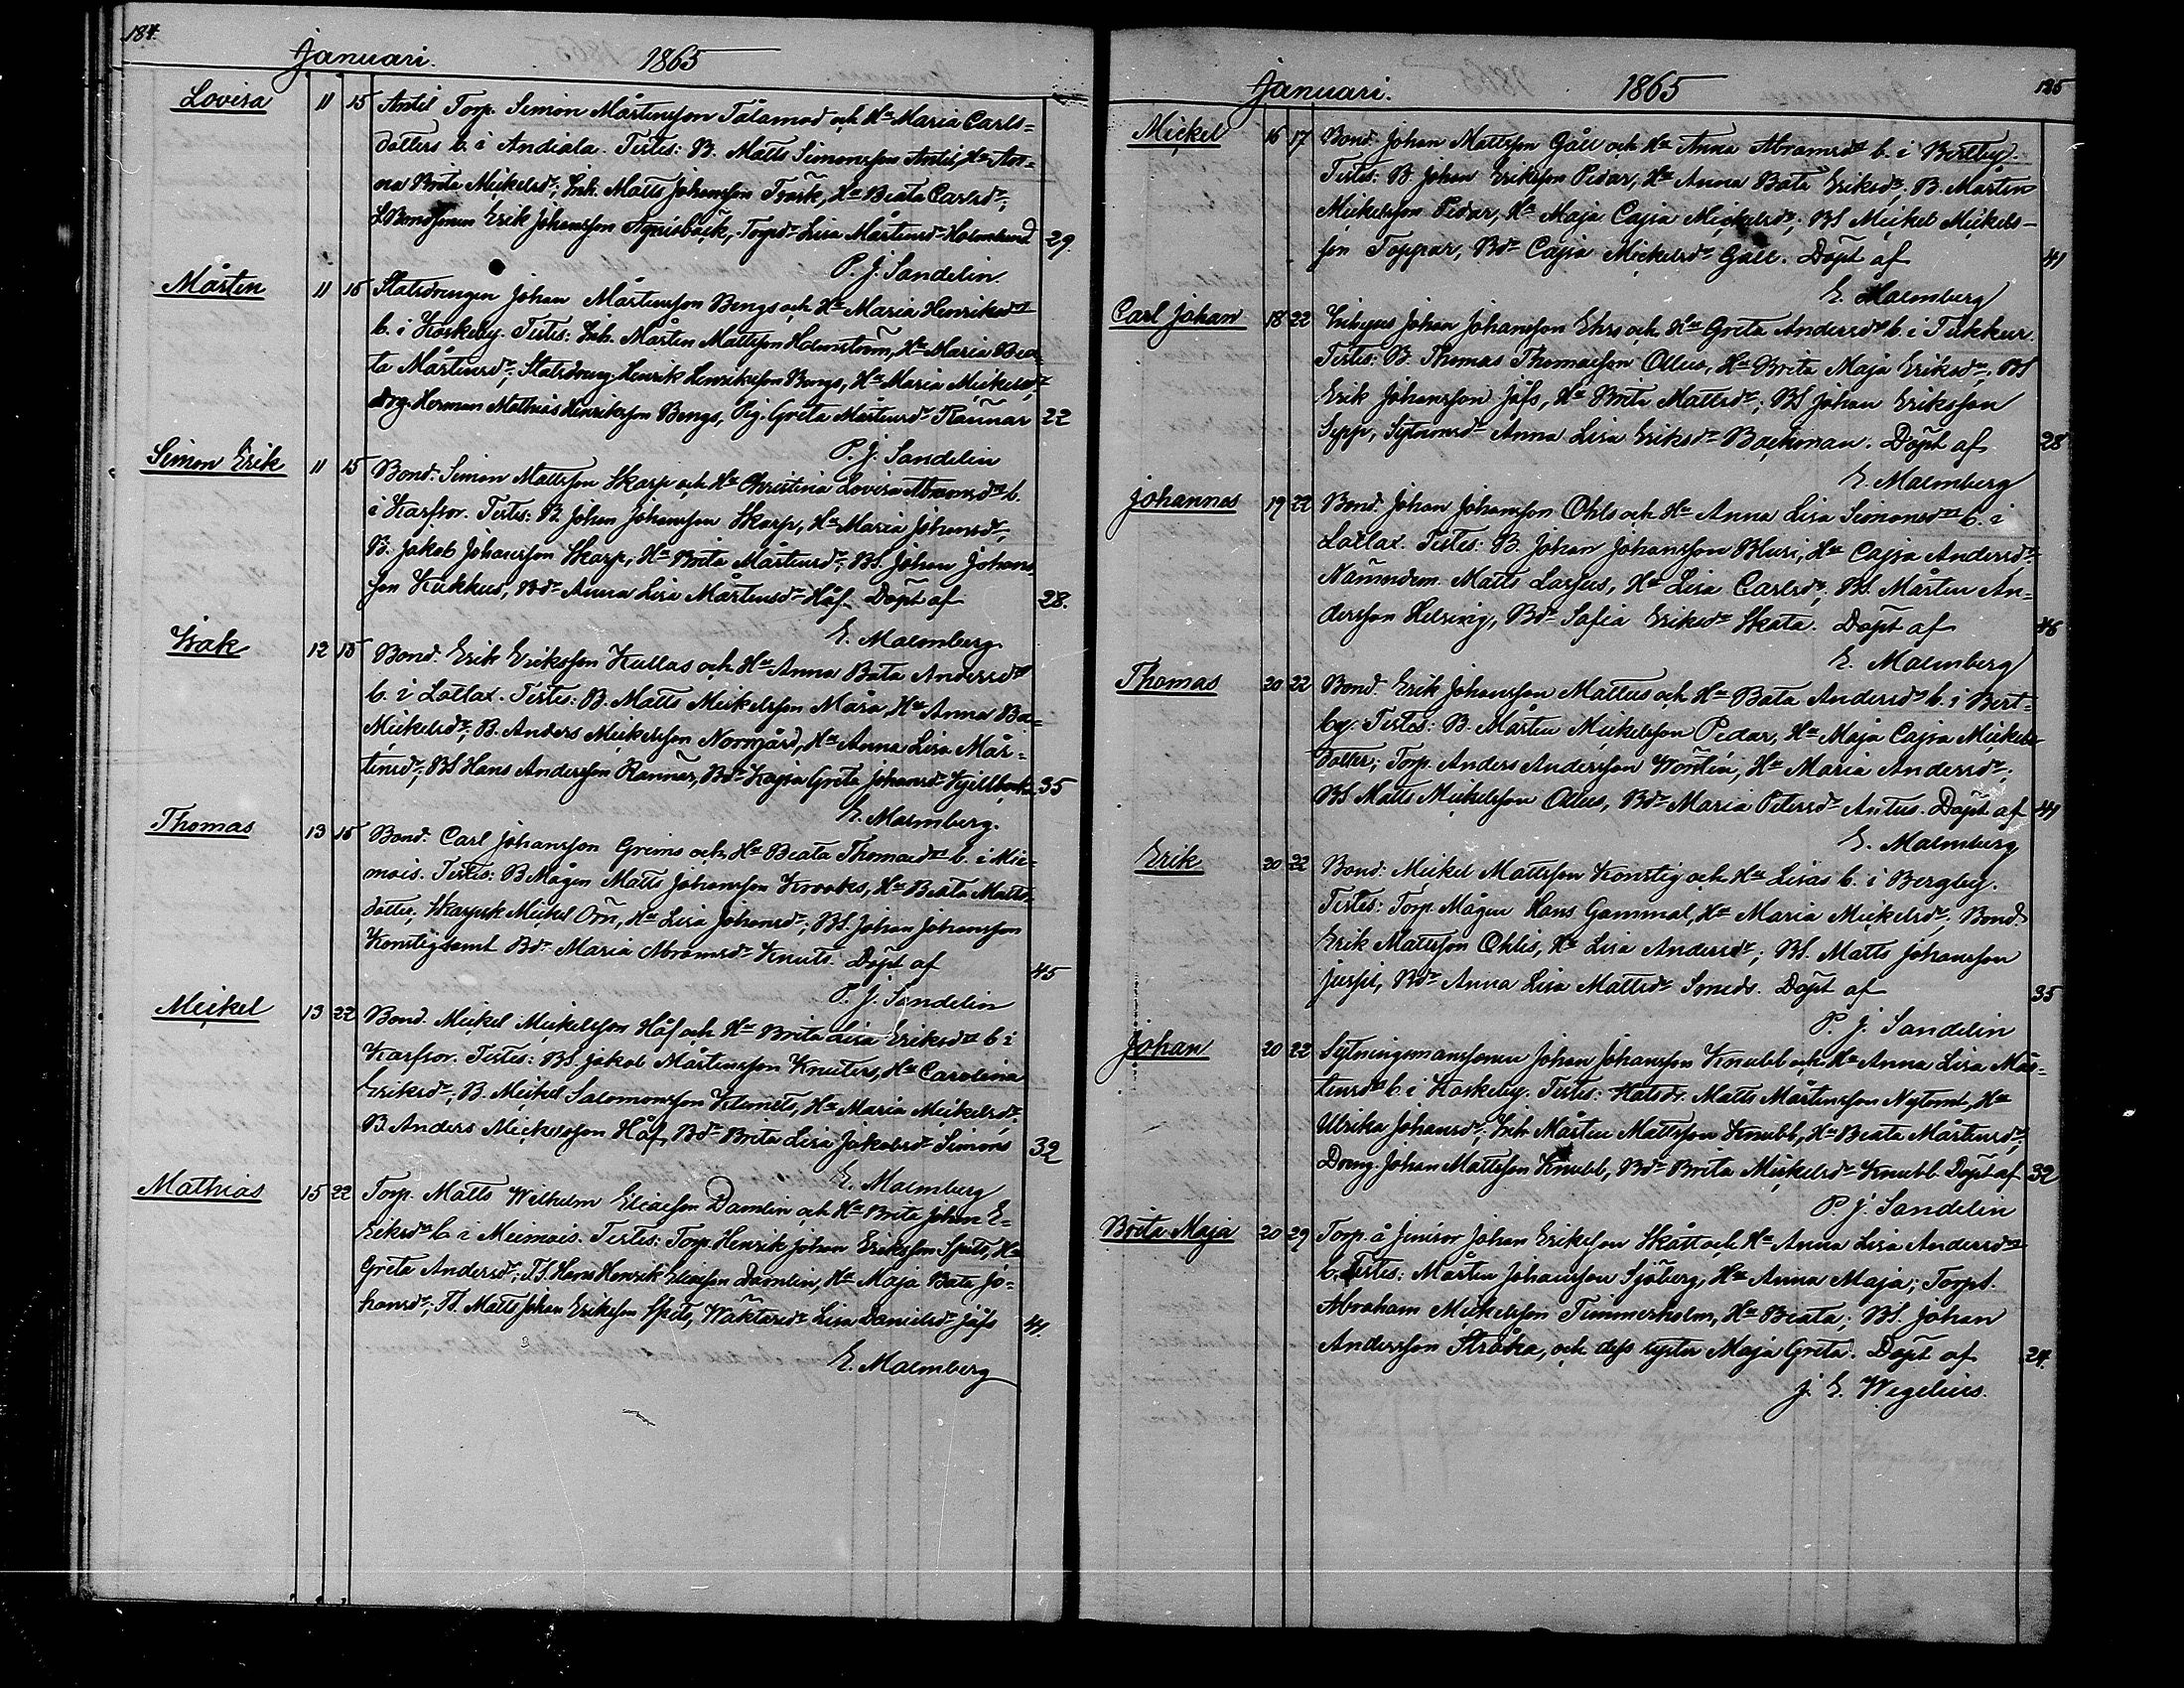 184.
Januari. 1865
Lovisa 11 15 Antil Torp. Simon Mårtensson Tålamod och Hu Maria Carls=
dotters b. i Andiala. Testes: B. Matts Simonsson Antil, Hu An=
na Brita Mickelsdr; Inh. Matts Johansson Träsk, Hu Beata Carlsdr;
Bondsonen Erik Johansson Agnisbäck, Torpdr Lisa Mårtensdr Holmlund 29.
P. J. Sandelin.
Mårten 11 15 Statsdrengen Johan Mårtensson Bengs och Hu Maria Henriksdrs
b. i Koskeby. Testes: Inh. Mårten Mattsson Holmström, Hu Maria Bea=
ta Mårtensdr; Statsdreng Henrik Henriksson Bengs, Hu Maria Mickelsdr
dreng. Herman Mathias Henriksson Bengs, Pig. Greta Mårtensdr Rännar 22
P. J. Sandelin
Simon Erik 11 15 Bond. Simon Mattsson Skarp och Hu Christina Lovisa Abramsdrs b.
i Karfsor. Testes: B. Johan Johansson Skarp, Hu Maria Johansdr;
B. Jakob Johansson Skarp, Hu Brita Mårtensdr; BS. Johan Johans
son Kukkus, Bdr Anna Lisa Mårtensdr Håf. Döpt af 28.
E. Malmberg.
Isak 12 15 Bond. Erik Eriksson Kullas och Hu Anna Bata Andersdrs
b. i Lollax. Testes: B. Matts Mickelsson Måra, Hu Anna Ba=
Mickelsdr; B. Anders Mickelsson Norrgård, Hu Anna Lisa Mår=
tensdr; BS Hans Andersson Rannar, Bdr Kajsa Greta Johansdr Kjellback 35
E. Malmberg.
Thomas 13 15 Bond. Carl Johansson Greims och Hu Beata Thomasdrs b. i Mie=
mois. Testes: B Mågen Matts Johansson Krooks, Hu Beata Matts
dotter, Skarpsk Mickel Örn, Hu Lisa Johansdr; BS. Johan Johansson
Konstig samt Bdr Maria Abramsdr Knuts. Döpt af 45
P. J. Sandelin
Mickel 13 22 Bond. Mickel Mickelsson Håf och Hu Brita Lisa Eriksdrs b i
Karfsor. Testes: BS. Jakob Mårtensson Knuters, Hu Carolina
Eriksdr; B. Mickel Salomonsson Klemets, Hu Maria Mickelsdr
B Anders Mickelsson Håf, Bdr Brita Lisa Jakobsdr Simons 32
E. Malmberg
Mathias 15 22 Torp. Matts Wilhelm Eliasson Damlin och Hu Brita Johan E=
riksdrs b. i Meimois. Testes: Torp. Henrik Johan Eriksson Spets, Hu
Greta Andersdr; TS. Hans Henrik Eliasson Damlin, Hu Maja Bata Jo=
hansdr; TS. Matts Johan Eriksson Spets, Wäktaredr Lisa Danielsdr Jåfs 41.
E. Malmberg
Januari. 1865 185
Mickel 16 17 Bond. Johan Mattsson Gåll och Hu Anna Abramsdrs b. i Bertby.
Testes: B. Johan Eriksson Pedar, Hu Anna Bata Eriksdr; B. Mårten
Mickelsson Pedar, Hu Maja Cajsa Mickelsdr; BS Mickel Mickels-
son Toppar, Bdr Cajsa Mickelsdr Gåll. Döpt af 41
E. Malmberg
Carl Johan 18 22 Johan Johansson Ehrs och Hu Greta Andersdrs b. i Tukkur.
Testes: B. Thomas Thomasson Ollus, Hu Brita Maja Eriksdr; BS
Erik Johansson Jåfs, Hu Brita Mattsdr; BS Johan Eriksson
Sepp, Sytnmsdr Anna Lisa Eriksdr Backman. Döpt af 28
E. Malmberg
Johannes 19 22 Bond. Johan Johansson Ohls och Hu Anna Lisa Simonsdrs b. i
Lollax. Testes: B. Johan Johansson Bluri, Hu Cajsa Andersdr
Nämndem. Matts Lassus, Hu Lisa Carlsdr; BS. Mårten An=
dersson Helsing, Bdr Safia Eriksdr Skata. Döpt af 46
E. Malmberg
Thomas 20 22 Bond. Erik Johansson Mattus och Hu Bata Andersdrs b. i Bert=
by. Testes: B. Mårten Mickelsson Pedar, Hu Maja Cajsa Mickels
dotter; Torp. Anders Andersson Wöntin, Hu Maria Andersdr;
BS Matts Mickelsson Ollus, Bdr Maria Petersdr Antus. Döpt af 41
E. Malmberg
Erik 20 22 Bond. Mickel Mattsson Konstig och Hu Lisas b. i Bergby.
Testes: Torp. Mågen Hans Gammal, Hu Maria Mickelsdr; Bond.
Erik Mattsson Ohlis, Hu Lisa Andersdr; BS. Matts Johansson
Jussil, Bdr Anna Lisa Mattsdr Smeds. Döpt af 35
P. J. Sandelin
Johan 20 22 Sytningsmanssonen Johan Johansson Knubb och Hu Anna Lisa Mår-
tensdrs b. i Koskeby. Testes: Matts Mårtensson Nytomt, Hu
Ulrika Johansdr; Inh. Mårten Mattsson Knubb, Hu Beata Mårtensdr;
Dreng. Johan Mattsson Knubb, Bdr Brita Mickelsdr Knubb. Döpt af 32
P. J. Sandelin
Brita Maja 20 29 Torp. å Johan Eriksson Skått och Hu Anna Lisa Andersdrs
b. Testes: Mårten Johansson Sjöberg, Hu Anna Maja; Torp.
Abraham Mickelsson Timmerholm, Hu Beata; BS. Johan
Andersson Stråka, och dess syster Maja Greta. Döpt af 24.
J. E. Wegelius.